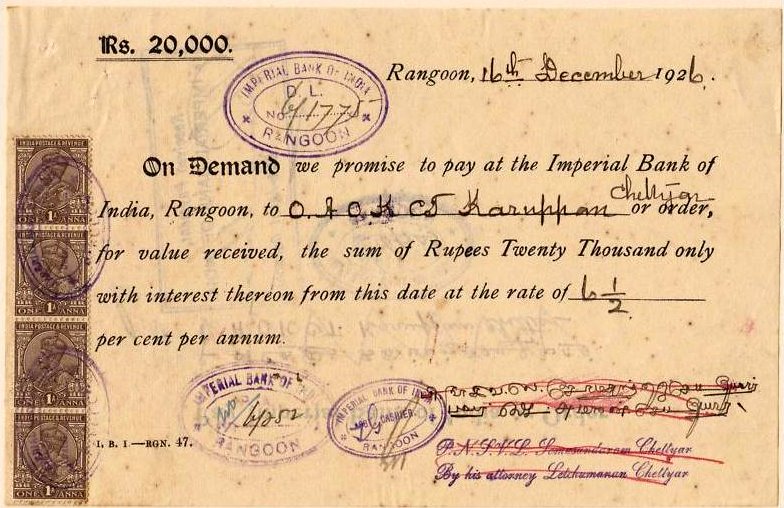 Rs. 20,000.
Rangoon, 16th December 1926.
IMPERIAL BANK OF INDIA
D. L.
No. 6/1775
RANGOON
On Demand we promise to pay at the Imperial Bank of
India, Rangoon, to O. A. O. K. CT Karuppan Chettyar or order,
for value received, the sum of Rupees Twenty Thousand only
with interest thereon from this date at the rate of 6 1/2
per cent per annum.
INDIA POSTAGE & REVENUE
ONE 1A ANNA
ONE 1A ANNA
INDIA POSTAGE & REVENUE
ONE 1A ANNA
ONE 1A ANNA
IMPERIAL BANK OF
RANGOON
IMPERIAL BANK OF INDIA
CASHIER
RANGOON
I. B. I.—RGN. 47.
P. N. S. V. L. Somasundaram Chettyar
By his attorney Letchumanan Chettyar